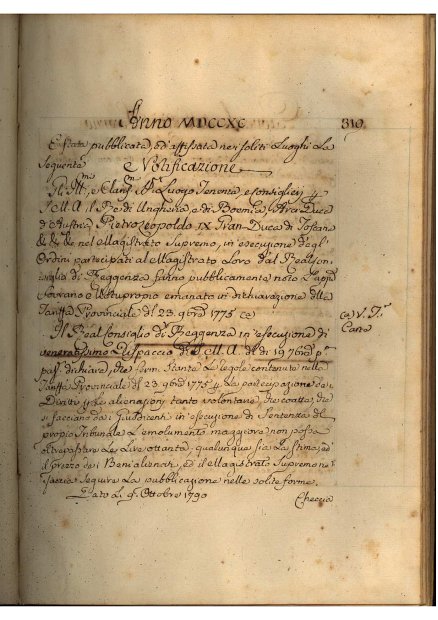 Anno MDCCXC
310
È stata pubblicata, ed affissata nei soliti Luoghi La
Seguente
Notificazione
Luogo Tenente, e Consiglieri
S. M. A. il Re di Ungheria, e di Boemia, Arciduca
d'Austria Pietro Leopoldo IX Gran-Duca di Toscana
&. &. &. nel Magistrato Supremo, in esecuzione degl'
Ordini partecipati al Magistrato Loro dal Real Con-
siglio di Reggenza fanno pubblicamente noto L'appiè
Sovrano Motuproprio emanato in dichiarazione della
Tariffa Provinciale de' 29. 9bre 1775
Il Real Consiglio di Reggenza in esecuzione di
veneratissimo Dispaccio di S. M. A. de' 19
dichiara, che ferm. Stante Le regole contenute nella
Tariffa Provinciale de' 29. 9bre 1775 La partecipazione dei
Diritti alienazioni tanto volontarie, che coatte, che
si facciano dai Giusdicenti in esecuzione di Sentenza del
proprio Tribunale L'emolumento maggiore non possa
oltrepassare Le Lire ottanta, qualunque sia La Stima, ed
il prezzo dei Beni alienati, ed il Magistrato Supremo ne
faccia Seguire La pubblicazione nelle solite forme.
Dato Li 9. Ottobre 1790